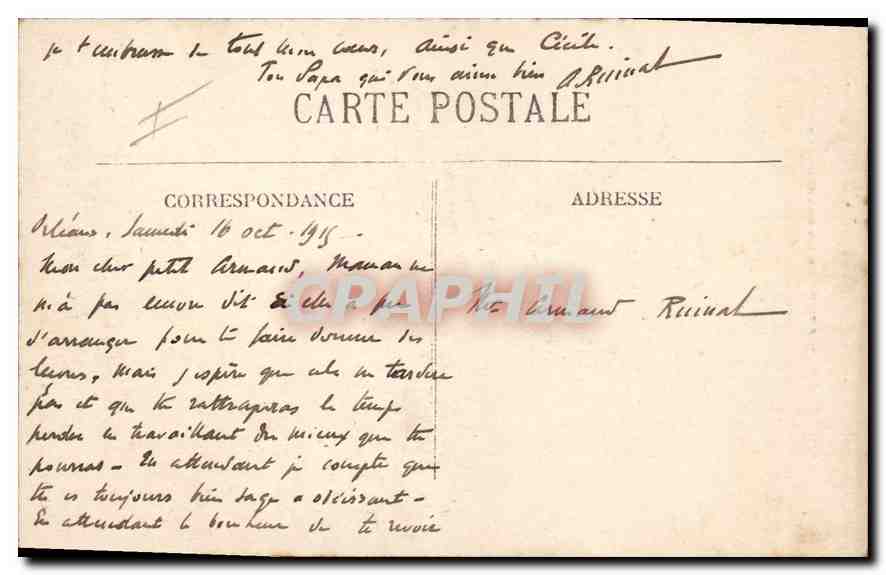 je t'embrasse de tout mon cœur, ainsi que Cécile.
Ton Papa qui vous aime bien ARuinat
CARTE POSTALE
CORRESPONDANCE
ADRESSE
Orléans, Samedi 16 oct. 1915 -
Mon cher petit Armand, Maman ne
m'a pas encore dit si elle a pu
d'arranger pour te faire donner des
leçons, mais j'espère que cela ne tardera
pas et que tu rattraperas le temps
perdu en travaillant du mieux que tu
pourras - En attendant je compte que
tu es toujours bien sage & obéissant -
En attendant le bonheur de te revoir
Armand Ruinat
CPAPHIL